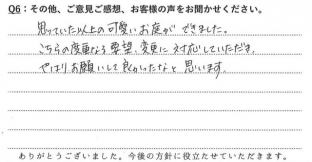 Q6：その他、ご意見ご感想、お客様の声をお聞かせください。
思っていた以上の可愛いお庭ができました。
こちらの度重なる要望、変更に対応していただき、
やはりお願いして良かったなと思います。
ありがとうございました。今後の方針に役立たせていただきます。